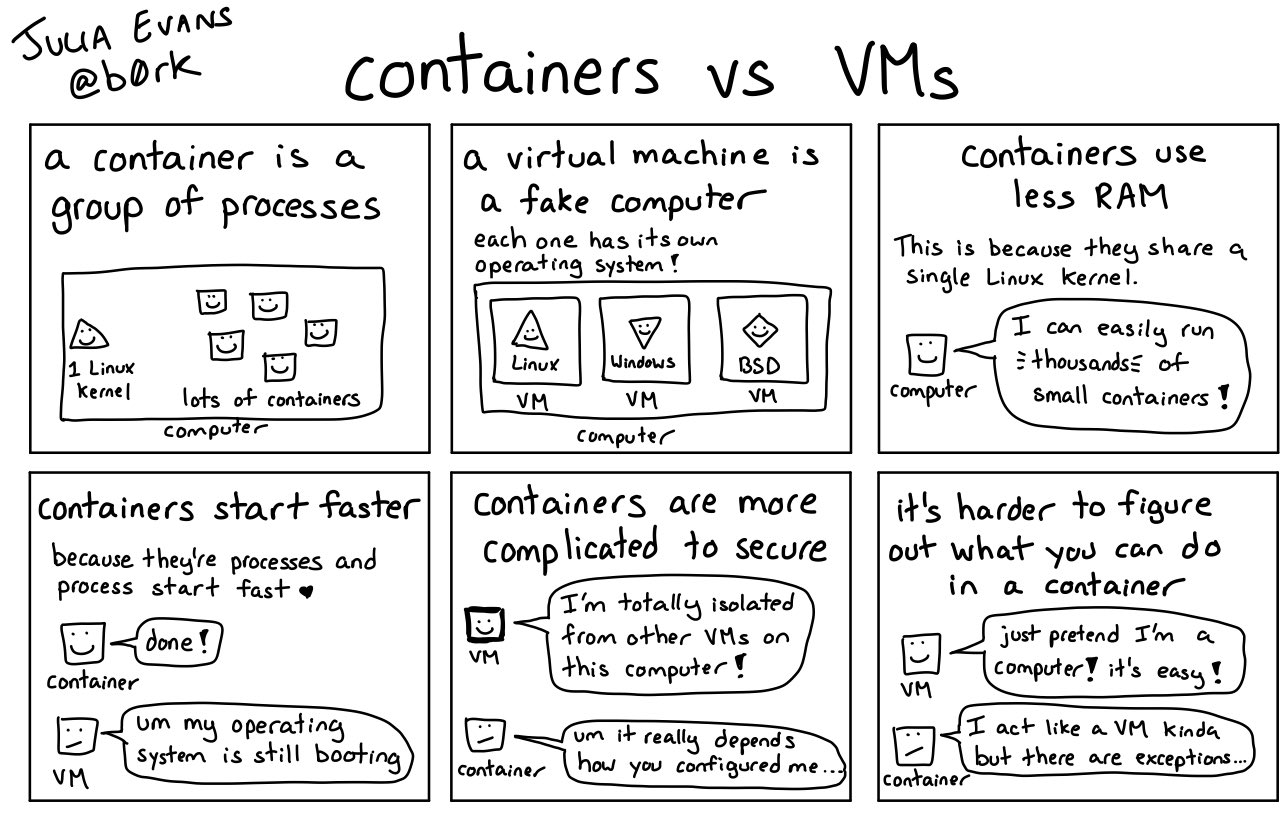 JULIA EVANS
@b0rk
containers vs VMs
a container is a
group of processes
1 Linux
kernel
lots of containers
computer
a virtual machine is
a fake computer
each one has its own
operating system!
Linux
VM
Windows
VM
BSD
VM
computer
containers use
less RAM
This is because they share a
single Linux kernel.
computer
I can easily run
thousands of
small containers!
containers start faster
because they're processes and
process start fast ♥
container
done!
VM
um my operating
system is still booting
containers are more
complicated to secure
VM
I'm totally isolated
from other VMs on
this computer!
container
um it really depends
how you configured me...
it's harder to figure
out what you can do
in a container
VM
just pretend I'm a
computer! it's easy!
container
I act like a VM kinda
but there are exceptions...